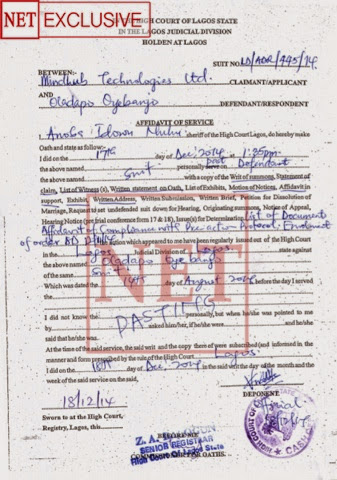 NET EXCLUSIVE
THE HIGH COURT OF LAGOS STATE
IN THE LAGOS JUDICIAL DIVISION
HOLDEN AT LAGOS
SUIT NO. LD/ADR/495/14.
BETWEEN:
Mindhub Technologies Ltd. CLAIMANT/APPLICANT
AND
Oladapo Oyebanjo DEFENDANT/RESPONDENT
AFFIDAVIT OF SERVICE
I sheriff of the High Court Lagos, do hereby make
Oath and state as follow:-
I did on the 17th day of Dec. 2014 at 1:35pm
the above named Defendant
the above named with a copy of the Writ of summons, Statement of
claim, List of Witness(s), Written statement on Oath, List of Exhibits, Motion of Notices, Affidavit in
support, Exhibit, Written Address, Written Submission, Written Brief, Petition for Dissolution of
Marriage, Request to set undefended suit down for Hearing, Originating summons, Notice of Appeal,
Hearing Notice (pre trial conference form 17 & 18), Issue(s) for Determination List of Document
Affidavit of Compliance with Pre-action Protocol, Enrolment
of order which appeared to me have been regularly issued out of the High Court
Lagos Judicial Division of Lagos state against
the above named Oladapo Oyebanjo
of the same
Which was dated the 14th day of August 2014 before the day I served
NET
PASTING
I did not know the personally, but when he was pointed to me
by asked him/her, if he/she were and he/she
said that he/she was.
At the time of said service, the said writ and the copy there of were subscribed (and informed in the
manner and form prescribed by the rule of the High Court Lagos
I did on the 18th day of Dec. 2014 in the said writ the day of the month and the
week of the said service on the said,
DEPONENT
18/12/14
Sworn to at the High Court,
Registry, Lagos, this
BEFORE ME
SENIOR REGISTRAR
High Court Of Lagos State
FOR OATHS.